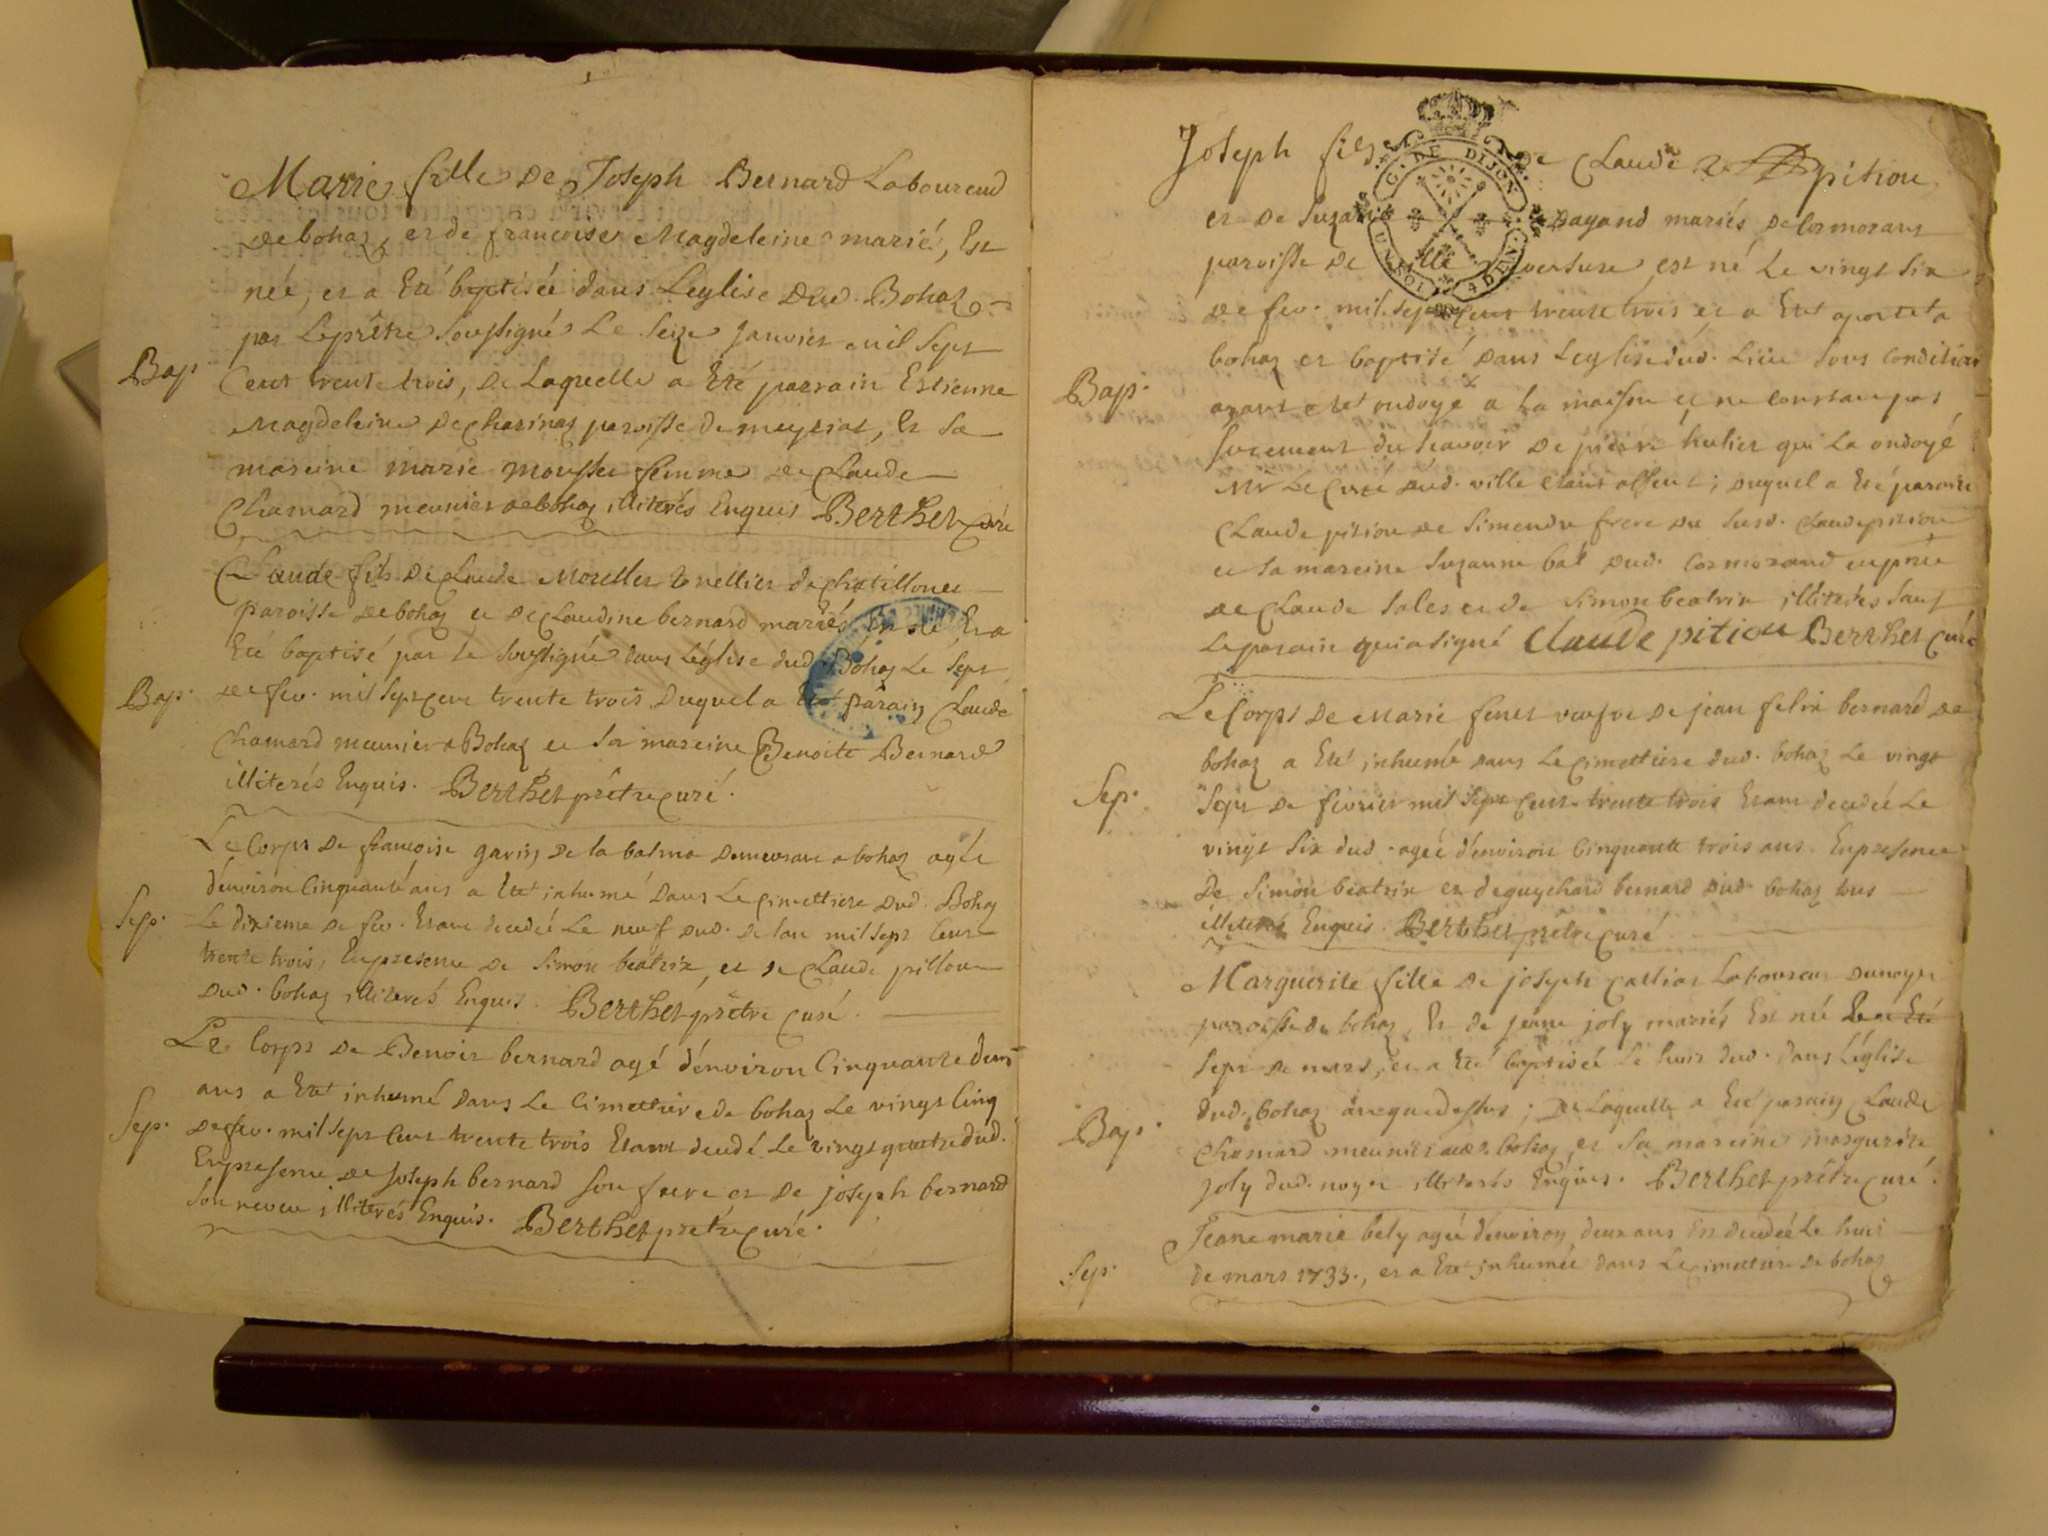 Marie fille de Joseph Bernard Laboureud
de bohaz, et de francoise Magdeleine mariés, Est
née, et a Eté baptisée dans L'eglise dud. Bohaz
par Leprêtre Soussigné Le Seize Janvier mil Sept
Bap.
Cent trente trois, de Laquelle a Eté parrain Estienne
Magdeleine de charinaz paroisse de meyriat, Et Sa
mareine marie femme de Claude
Chamard meunier de bohaz illiterés Enquis Berthet curé
Claude fils de Claude de chatillonet
paroisse de bohaz et de Claudine bernard mariés, Est né Et a
Eté baptisé par Le Soussigné dans L'église dud. Bohaz Le Sept
Bap.
de fev. mil Sept cent trente trois Duquel a Eté parain Claude
Chamard meunier a Bohaz et Sa mareine Benoite Bernard
illiterés Enquis. Berthet prêtre curé.
Le Corps de francoise gavin de la balme demeurant a bohaz agée
d'environ Cinquante ans a Eté inhumé dans Le Cimettiere dud. Bohaz
Sep.
Le dixieme de fev. Etant decedée Le neuf dud. de l'an mil Sept Cent
trente trois, En presence de Simon beatrix, et de Claude pillon
dud. bohaz illiterés Enquis. Berthet prêtre Curé.
Le Corps de Benoit bernard agé d'environ Cinquante deux
ans a Eté inhumé dans Le Cimettiere de bohaz Le vingt Cinq
Sep.
de fev. mil Sept Cent trente trois Etant decedé Le vingt quatre dud.
En presence de Joseph bernard Son frere et de joseph bernard
Son neveu illiterés Enquis. Berthet prêtre Curé.
Joseph fils de Claude pition
G. DE DIJON
UN SOL 4 DEN.
et de Suzanne payand mariés de Cormorant
paroisse de ville reversure est né Le vingt Six
de fev. mil Sept Cent trente trois et a Eté aporté a
bohaz et baptisé dans L'eglise dud. Lieu Sous Condition
Bap.
ayant eté ondoyé a La maison et ne constant pas
Surement du Scavoir de pierre qui La ondoyé
Mr Le Curé dud. ville etant absent; Duquel a Eté parain
Claude pition de Simendre frere du Susd. Claude pition
et Sa mareine Suzanne bal dud. Cormorand
de Claude et de Simon beatrix illiterés Sauf
Le parain qui a Signé Claude pition Berthet Curé
Le Corps de Marie veufve de jean felix bernard de
bohaz a Eté inhumé dans Le Cimettiere dud. bohaz Le vingt
Sep.
Sept de fevrier mil Sept Cent trente trois Etant decedée Le
vingt Six dud. agée d'environ Cinquante trois ans. En presence
de Simon beatrix et de guychard bernard dud. bohaz tous
illiterés Enquis. Berthet prêtre Curé
Marguerite fille de joseph Callias Laboureur du noyer
paroisse de bohaz, Et de jeane joly mariés Est née Le a Eté
Sept de mars, et a Eté baptisée Le huit dud. dans L'église
dud. bohaz avequedessus; De Laquelle a Eté parain Claude
Bap.
Chamard meunier de bohaz, et Sa mareine margueritte
joly dud. noyer illiterés Enquis. Berthet prêtre Curé.
Jeane marie bely agée d'environ deux ans Est decedée Le huit
Sep.
de mars 1733., et a Eté inhumée dans Le Cimettiere de bohaz